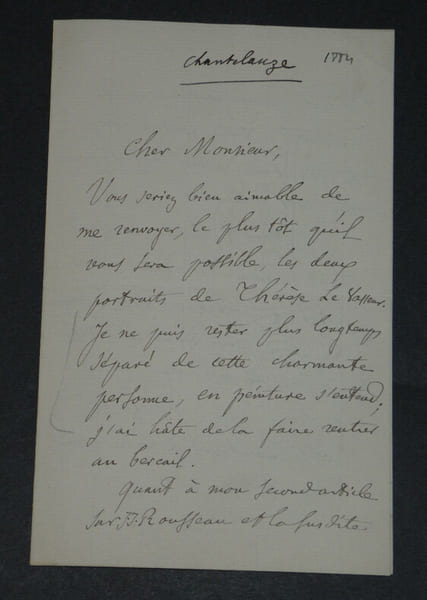 Chantelauze 1884
Cher Monsieur,
Vous seriez bien aimable de
me renvoyer, le plus tôt qu'il
vous sera possible, les deux
portraits de Thérèse Le Vasseur.
Je ne puis rester plus longtemps
séparé de cette charmante
personne, en peinture s'entend;
j'ai hâte de la faire rentrer
au bercail.
Quant à mon second article
sur J.J. Rousseau et la susdite